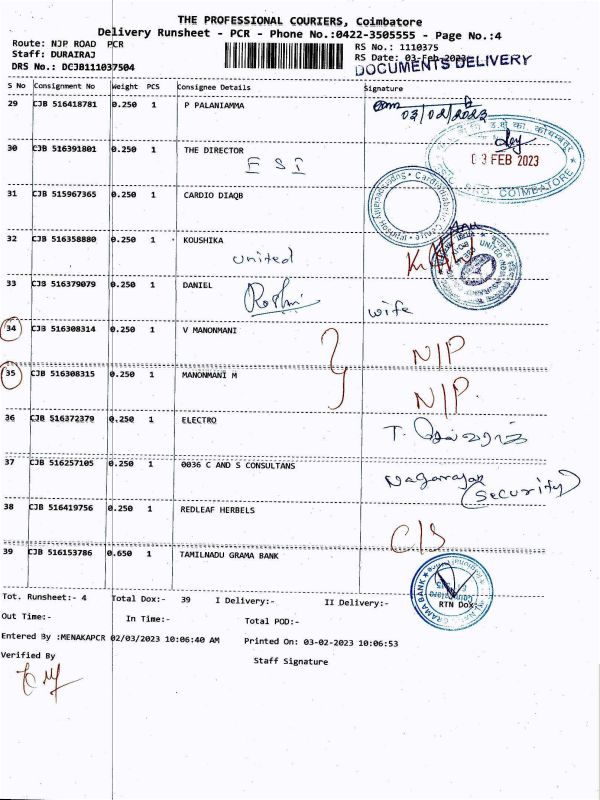 THE PROFESSIONAL COURIERS, Coimbatore
Delivery Runsheet - PCR - Phone No.:0422-3505555 - Page No.:4
Route: NJP ROAD PCR
RS No.: 1110375
Staff: DURAIRAJ
RS Date: 03-Feb-2023
DRS No.: DCJB111037504
DOCUMENTS DELIVERY
S No Consignment No Weight PCS Consignee Details Signature
29 CJB 516418781 0.250 1 P PALANIAMMA
03/02/2023
30 CJB 516391801 0.250 1 THE DIRECTOR
ESI
03 FEB 2023
COIMBATORE
31 CJB 515967365 0.250 1 CARDIO DIAQB
32 CJB 516358880 0.250 1 KOUSHIKA
united
33 CJB 516379079 0.250 1 DANIEL
Roshni
wife
34 CJB 516308314 0.250 1 V MANONMANI
N/P
35 CJB 516308315 0.250 1 MANONMANI M
N/P.
36 CJB 516372379 0.250 1 ELECTRO
37 CJB 516257105 0.250 1 0036 C AND S CONSULTANS
Nagarajan
(Security)
38 CJB 516419756 0.250 1 REDLEAF HERBELS
C/S
39 CJB 516153786 0.650 1 TAMILNADU GRAMA BANK
GRAMA BANK
Tot. Runsheet:- 4 Total Dox:- 39 I Delivery:- II Delivery:- RTN Dox:
Out Time:- In Time:- Total POD:-
Entered By :MENAKAPCR 02/03/2023 10:06:40 AM Printed On: 03-02-2023 10:06:53
Verified By
Staff Signature